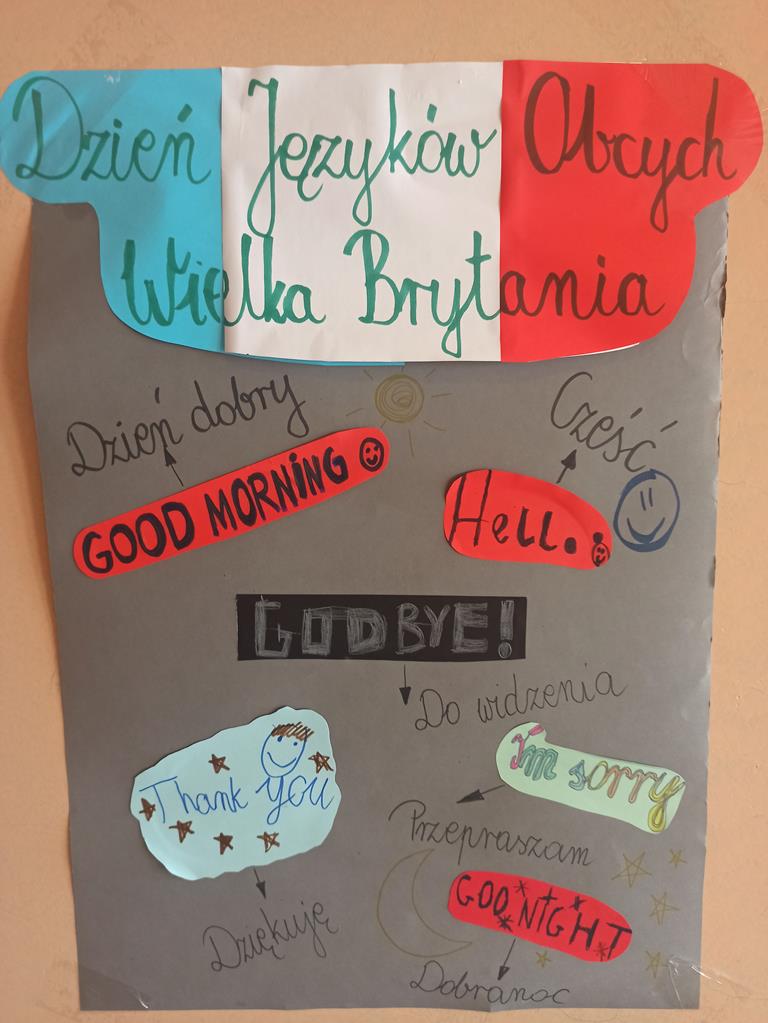 Dzień Języków Obcych
Wielka Brytania
Dzień dobry
GOOD MORNING
Cześć
Hell.
GODBYE!
Do widzenia
Thank you
Dziękuję
I'm sorry
Przepraszam
GOD NIGHT
Dobranoc